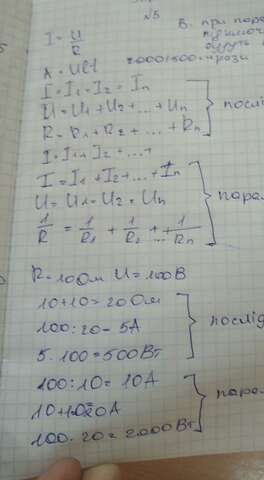 №5
I = U/R
В. при пара
A = UIt
будуть
2000:500 = 4 рази
I = I₁ = I₂ = Iₙ
U = U₁ + U₂ + ... + Uₙ
R = R₁ + R₂ + ... + Rₙ
послі
I = I₁ + I₂ + ... +
I = I₁ + I₂ + ... + Iₙ
U = U₁ = U₂ = Uₙ
1/R = 1/R₁ + 1/R₂ + ... + 1/Rₙ
парал
R = 10 Ом U = 100 В
10+10=20 Ом
100:20=5А
5·100=500Вт
послід
100:10=10А
10+10=20А
100·20=2000Вт
пара